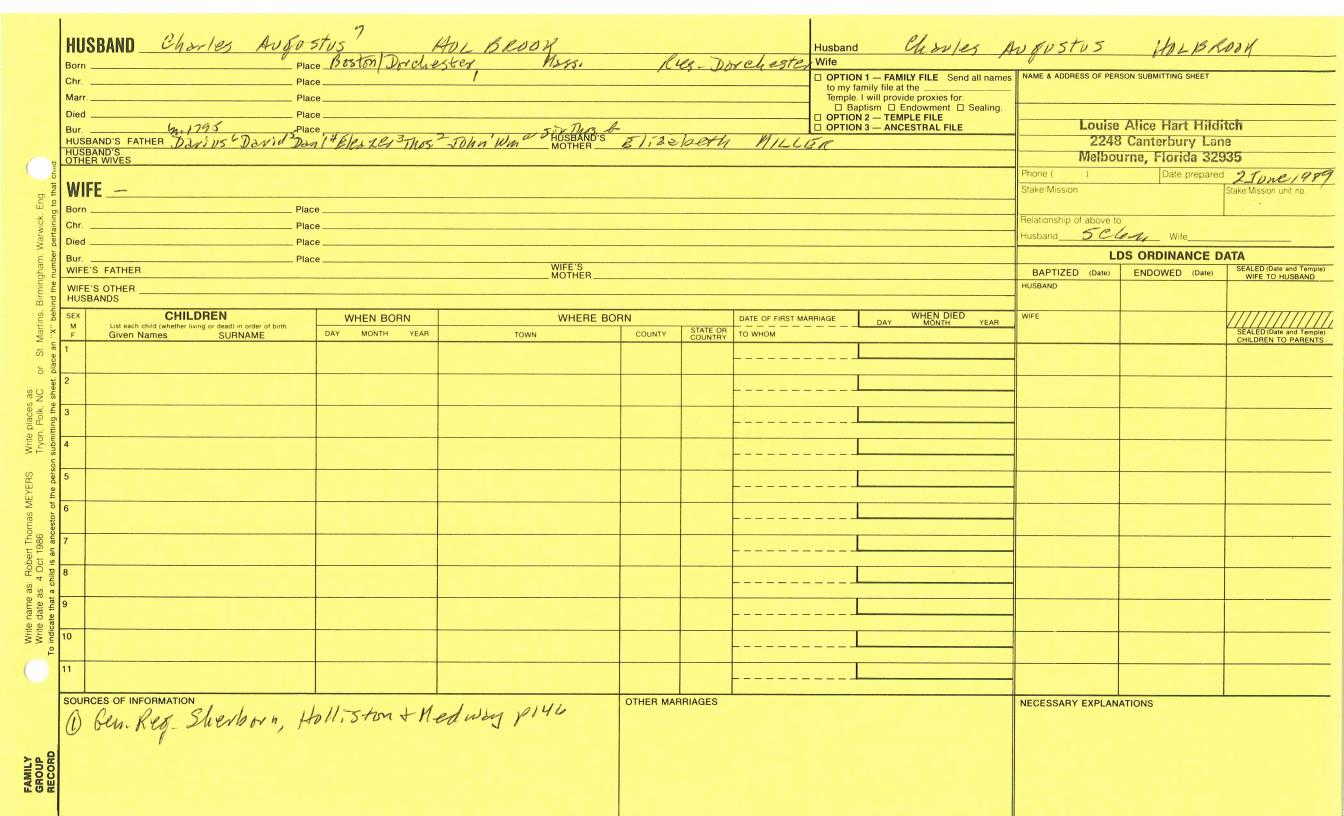 HUSBAND Charles Augustus 7 HOLBROOK
Born Place Boston/Dorchester, Mass. Res- Dorchester
Chr. Place
Marr. Place
Died Place
Bur. Place
m.1795
HUSBAND'S FATHER Darius 6 David 5 Dan'l 4 Eleazer 3 Thos 2 John 1 Wm HUSBAND'S MOTHER Elizabeth MILLER
HUSBAND'S OTHER WIVES
WIFE —
Born Place
Chr. Place
Died Place
Bur. Place
WIFE'S FATHER WIFE'S MOTHER
WIFE'S OTHER HUSBANDS
Husband Charles Augustus HOLBROOK
Wife
☐ OPTION 1 — FAMILY FILE Send all names
to my family file at the
Temple. I will provide proxies for:
☐ Baptism ☐ Endowment ☐ Sealing.
☐ OPTION 2 — TEMPLE FILE
☐ OPTION 3 — ANCESTRAL FILE
NAME & ADDRESS OF PERSON SUBMITTING SHEET
Louise Alice Hart Hilditch
2248 Canterbury Lane
Melbourne, Florida 32935
Phone ( ) Date prepared 2 June 1989
Stake/Mission Stake/Mission unit no.
Relationship of above to
Husband 5C Wife
LDS ORDINANCE DATA
BAPTIZED (Date) ENDOWED (Date) SEALED (Date and Temple) WIFE TO HUSBAND
HUSBAND
WIFE
SEALED (Date and Temple) CHILDREN TO PARENTS
SEX M F
CHILDREN
List each child (whether living or dead) in order of birth
Given Names SURNAME
WHEN BORN
DAY MONTH YEAR
WHERE BORN
TOWN COUNTY STATE OR COUNTRY
DATE OF FIRST MARRIAGE
TO WHOM
WHEN DIED
DAY MONTH YEAR
1
2
3
4
5
6
7
8
9
10
11
SOURCES OF INFORMATION
① Gen. Reg. Sherborn, Holliston & Medway p146
OTHER MARRIAGES
NECESSARY EXPLANATIONS
Write name as Robert Thomas MEYERS Write places as Tryon, Polk, NC or St. Martins, Birmingham, Warwick, Eng
Write date as 4 Oct 1986
To indicate that a child is an ancestor of the person submitting the sheet, place an "X" behind the number pertaining to that child
FAMILY
GROUP
RECORD